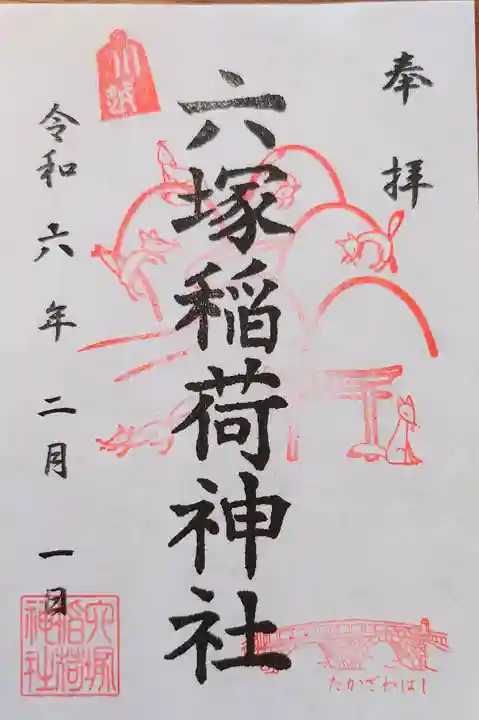 奉拝
川越
六塚稲荷神社
令和六年二月一日
六塚
稲荷
神社
たかざわはし